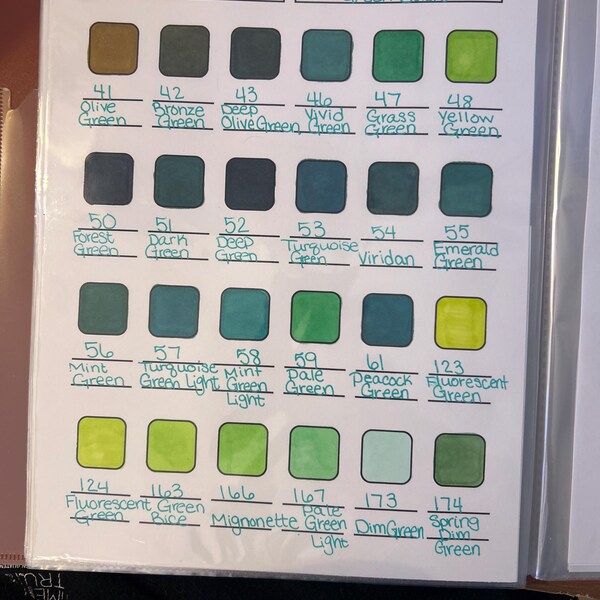 41 42 43 46 47 48
Olive Bronze Deep Vivid Grass Yellow
Green Green Olive Green Green Green Green
50 51 52 53 54 55
Forest Dark Deep Turquoise Viridan Emerald
Green Green Green Green Green
56 57 58 59 61 123
Mint Turquoise Mint Pale Peacock Fluorescent
Green Green Light Green Green Green Green
Light
124 163 166 167 173 174
Fluorescent Green Mignonette Pale DimGreen Spring
Green Bice Green Dim
Light Green